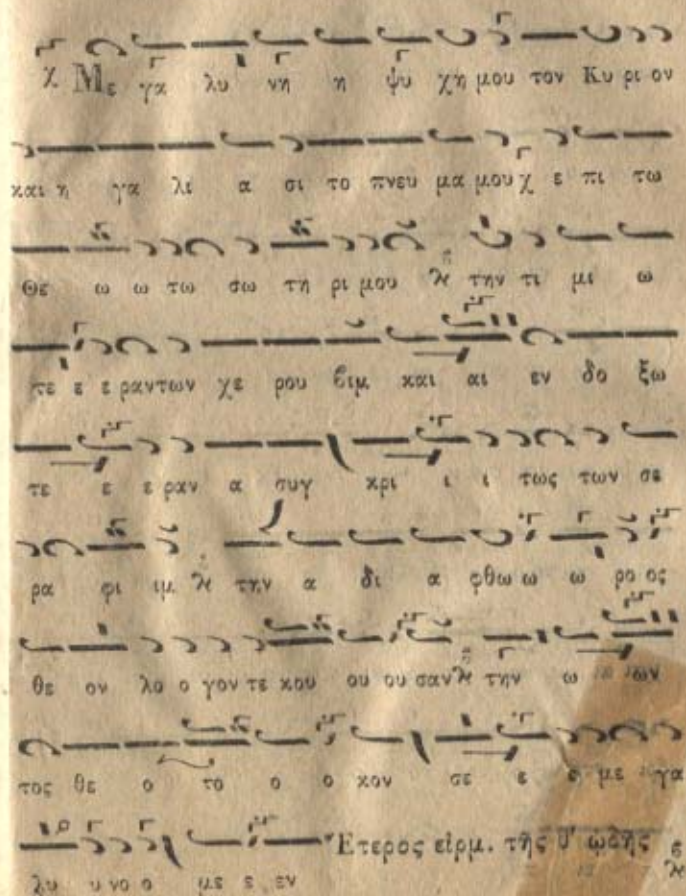 χ Με γα λυ νη η ψυ χη μου τον Κυ ρι ον
και η γα λι α σι το πνευ μα μου χ ε πι τω
Θε ω ω τω σω τη ρι μου την τι μι ω
τε ε ε ραν των χε ρου βιμ και αι εν δο ξω
τε ε ε ραν α συγ κρι ι ι τως των σε
ρα φι ιμ την α δι α φθω ω ω ρο ος
θε ον λο ο γον τε κου ου ου σαν την ω ων
τος θε ο το ο ο κον σε ε ε με γα
λυ υ νο ο με ε εν Έτερος εἱρμ. τῆς θʹ ᾠδῆς